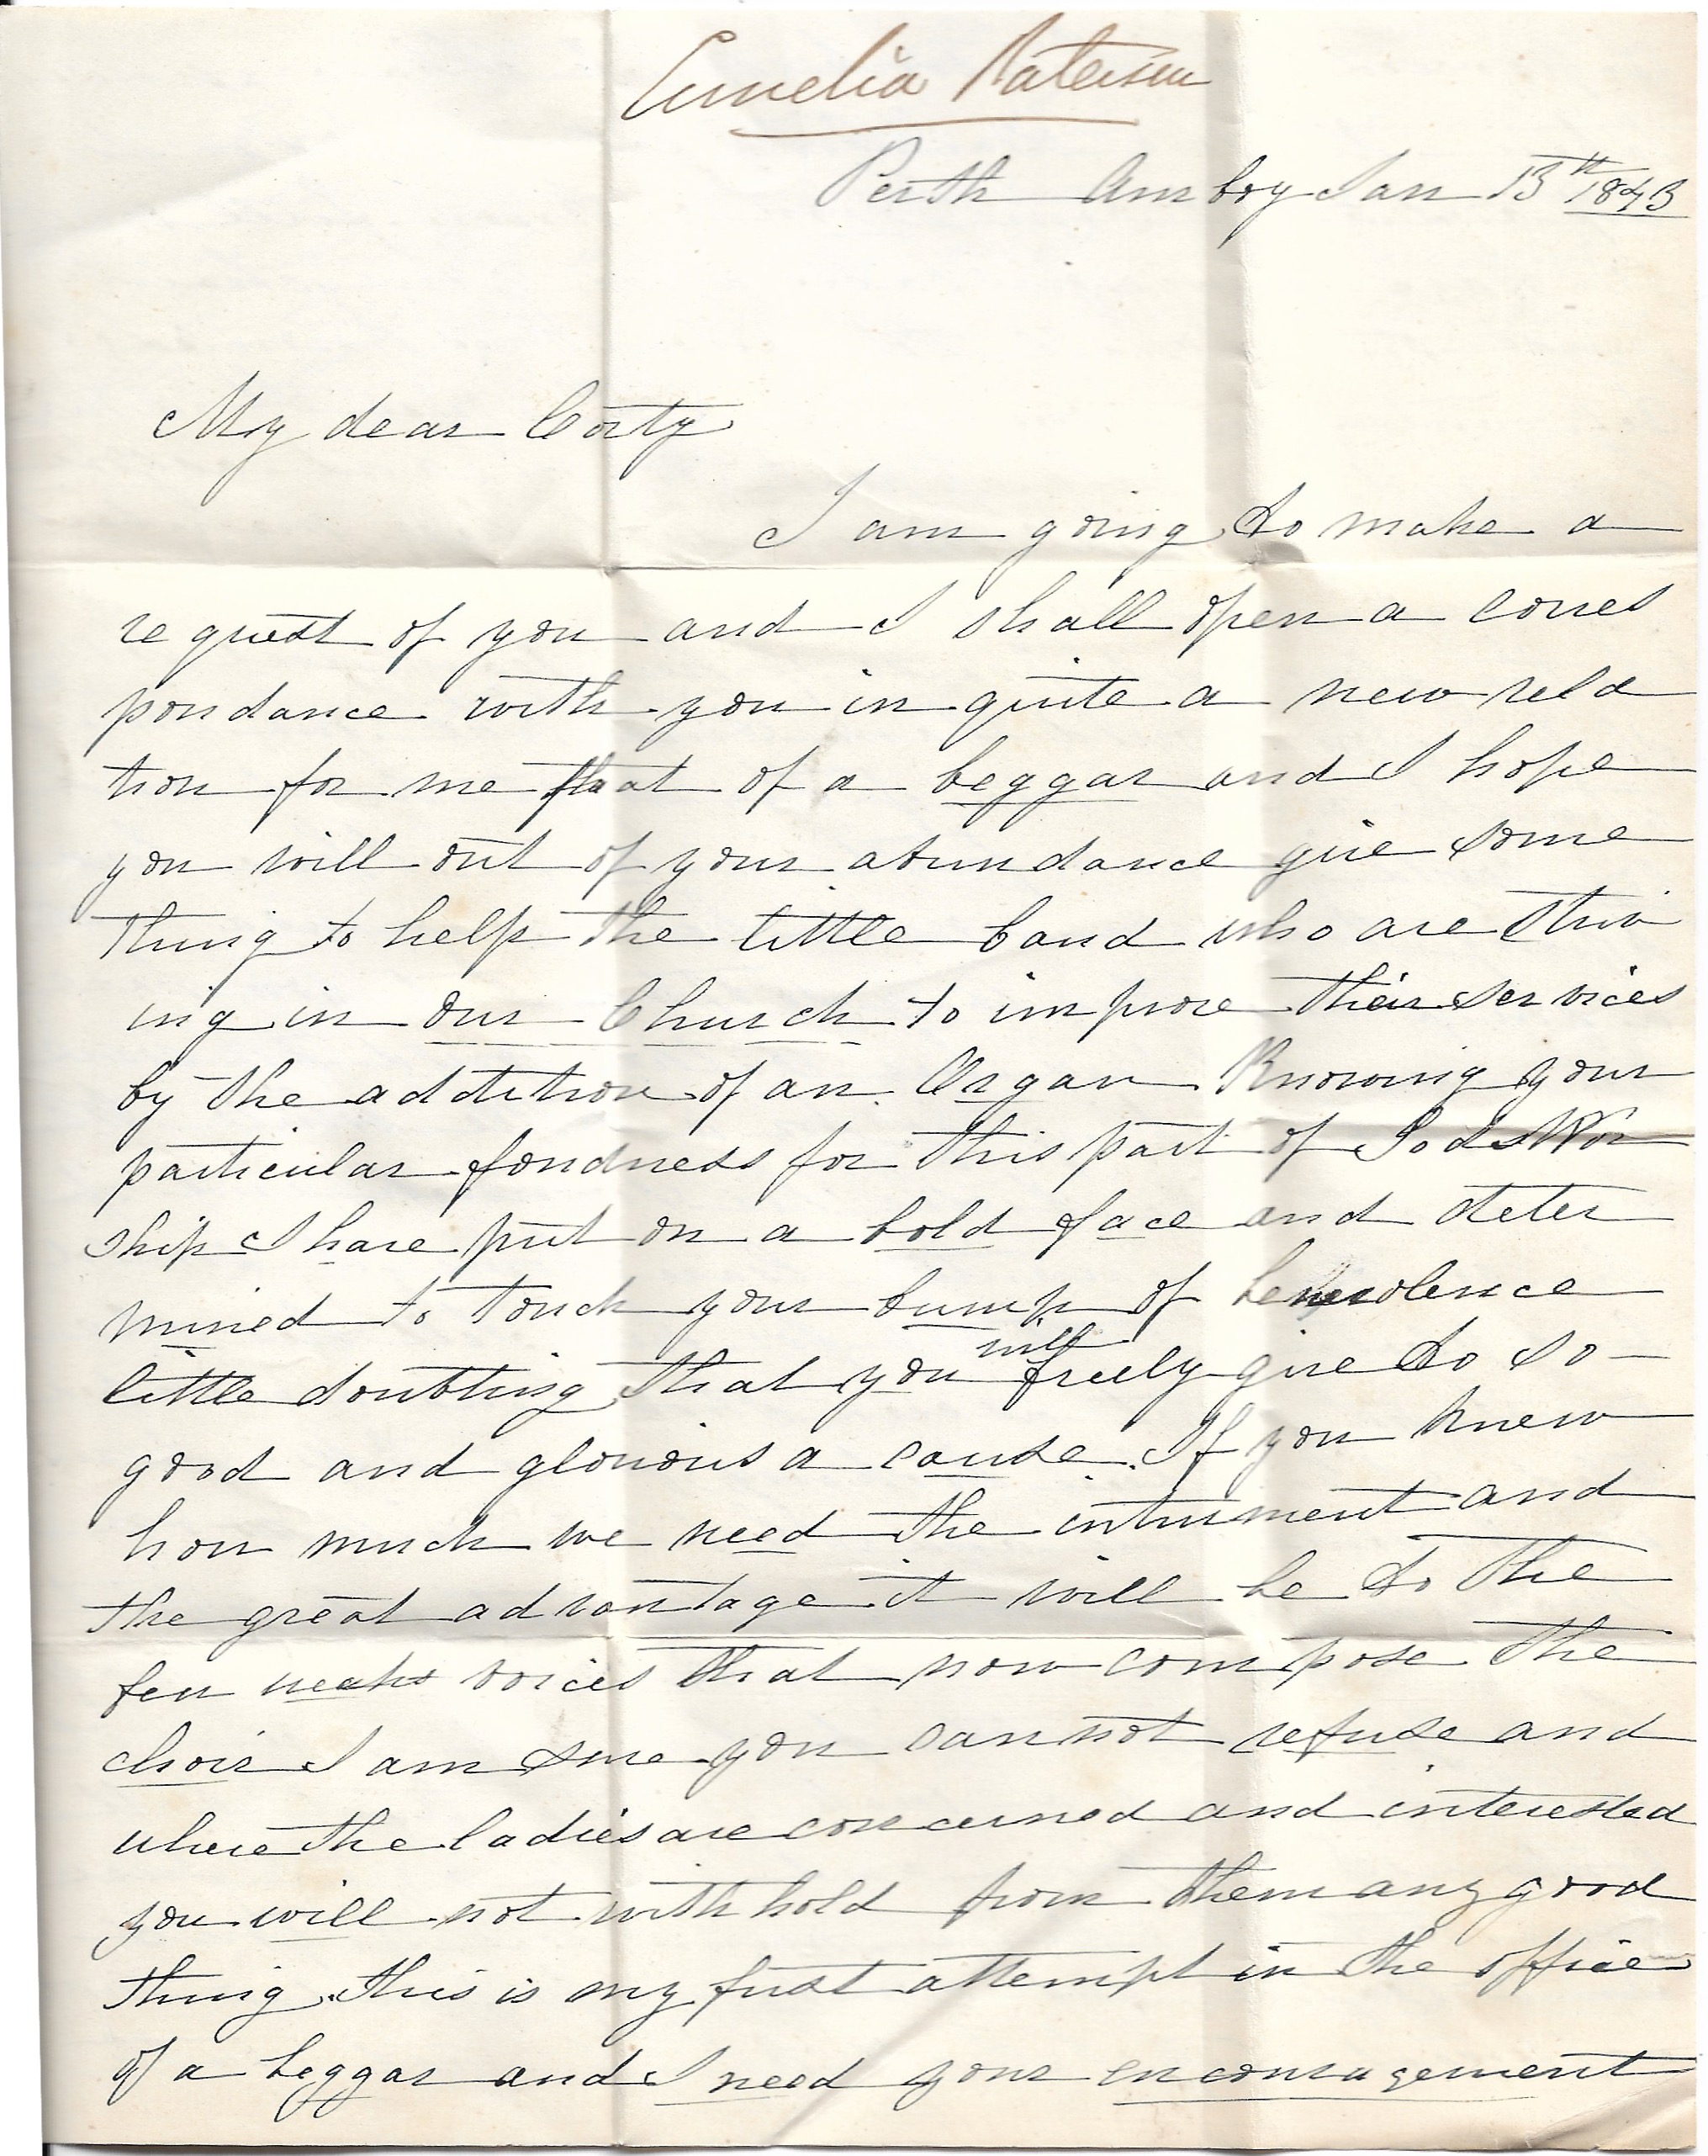 Paterson
Perth Amboy Jan 13th 1843
My dear Corty
I am going to make a
request of you and I shall open a corres
pondance with you in quite a new rela
tion for me that of a beggar and I hope
you will out of your abundance give some
thing to help the little band who are striv
ing in our Church to improve their services
by the addition of an Organ Knowing your
particular fondness for this part of Gods Wor
ship I have put on a bold face and deter
mined to touch your bump of benevolence
little doubting that you will freely give to so
good and glorious a cause. If you knew
how much we need the intrument and
the great advantage it will be to the
few weak voices that now compose the
choir I am sure you cannot refuse and
where the ladies are concerned and interested
you will not withhold from them any good
thing. this is my first attempt in the office
of a beggar and I need your encouragement